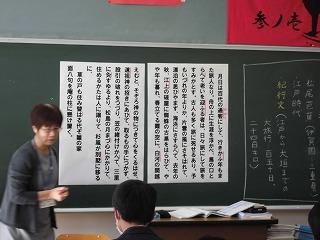 参ノ壱
松尾芭蕉（伊賀国→三重県）
江戸時代
紀行文（江戸から大垣までの
大旅行 百五十日、
二千四百キロ）
月日は百代の過客にして、行きかふ年もま
た旅人なり。舟の上に生涯を浮かべ、馬の口と
らへて老いを迎ふる者は、日々旅にして旅を
すみかとす。古人も多く旅に死せるあり。予
もいづれの年よりか、片雲の風にさそはれて
漂泊の思ひやまず、海浜にさすらへ、去年の
秋、江上の破屋に蜘蛛の古巣をはらひて、や
や年も暮れ、春立てる霞の空に、白河の関越
えむと、そぞろ神の物につきて心をくるはせ、
道祖神の招きにあひて、取るもの手につかず、
股引の破れをつづり、笠の緒付けかへて、三里
に灸すゆるより、松島の月まづ心にかかりて、
住めるかたは人に譲りて、杉風が別墅に移る
に、
草の戸も住み替はる代ぞ雛の家
面八句を庵の柱に懸け置く。